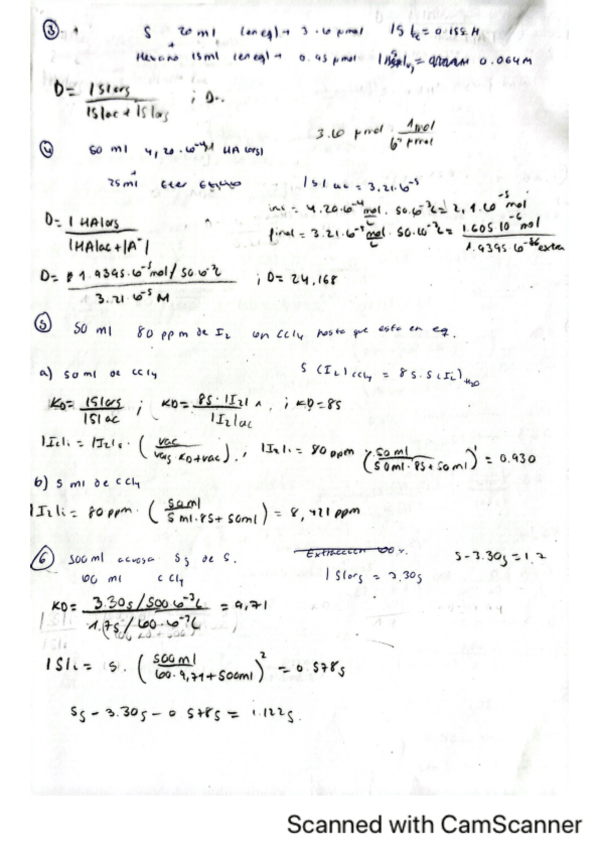 ③ S 20 ml (en eq) → 3.10 µmol |S|₂ = 0.155 M
Hexano 15 ml (en eq) → 0.95 µmol = 0.064 M
D = |S|org / |S|ac + |S|org ; D..
3.10 µmol · 1 mol / 10⁶ µmol
④ 50 ml 4,20·10⁻⁴M HA (org)
25 ml Eter Etílico |S| ac = 3,21·10⁻⁵
D = |HA|org / |HA|ac + |A⁻|
inic = 4.20·10⁻⁴ mol/L · 50·10⁻³L = 2,1·10⁻⁵ mol
final = 3.21·10⁻⁵ mol/L · 50·10⁻³L = 1.605 10⁻⁶ mol
1.9395 10⁻⁵ extra
D = 1.9395·10⁻⁵ mol / 50·10⁻³ / 3.21·10⁻⁵ M ; D = 24,168
⑤ 50 ml 80 ppm de I₂ con CCl₄ hasta que esta en eq.
a) 50 ml de CCl₄ S (I₂)CCl₄ = 85·S(I₂)H₂O
KD = |S|org / |S|ac ; KD = 85·|I₂| / |I₂|ac ; KD = 85
|I₂|₁ = |I₂|₀ · (Vac / Vorg·KD + Vac) ; |I₂|₁ = 80 ppm · (50 ml / 50 ml·85 + 50 ml)¹ = 0.930
b) 5 ml de CCl₄
|I₂|₁ = 80 ppm · (50 ml / 5 ml·85 + 50 ml) = 8,421 ppm
⑥ 500 ml acuosa 5g de S.
S - 3.30g = 1.7
100 ml CCl₄ |S|org = 3.30g
KD = 3.30g / 500·10⁻³L / 1.7g / 100·10⁻³L = 9,71
|S|₁ = 5 · (500 ml / 100·9,71 + 500 ml)² = 0.578g
5g - 3.30g - 0.578g = 1.122g
Scanned with CamScanner